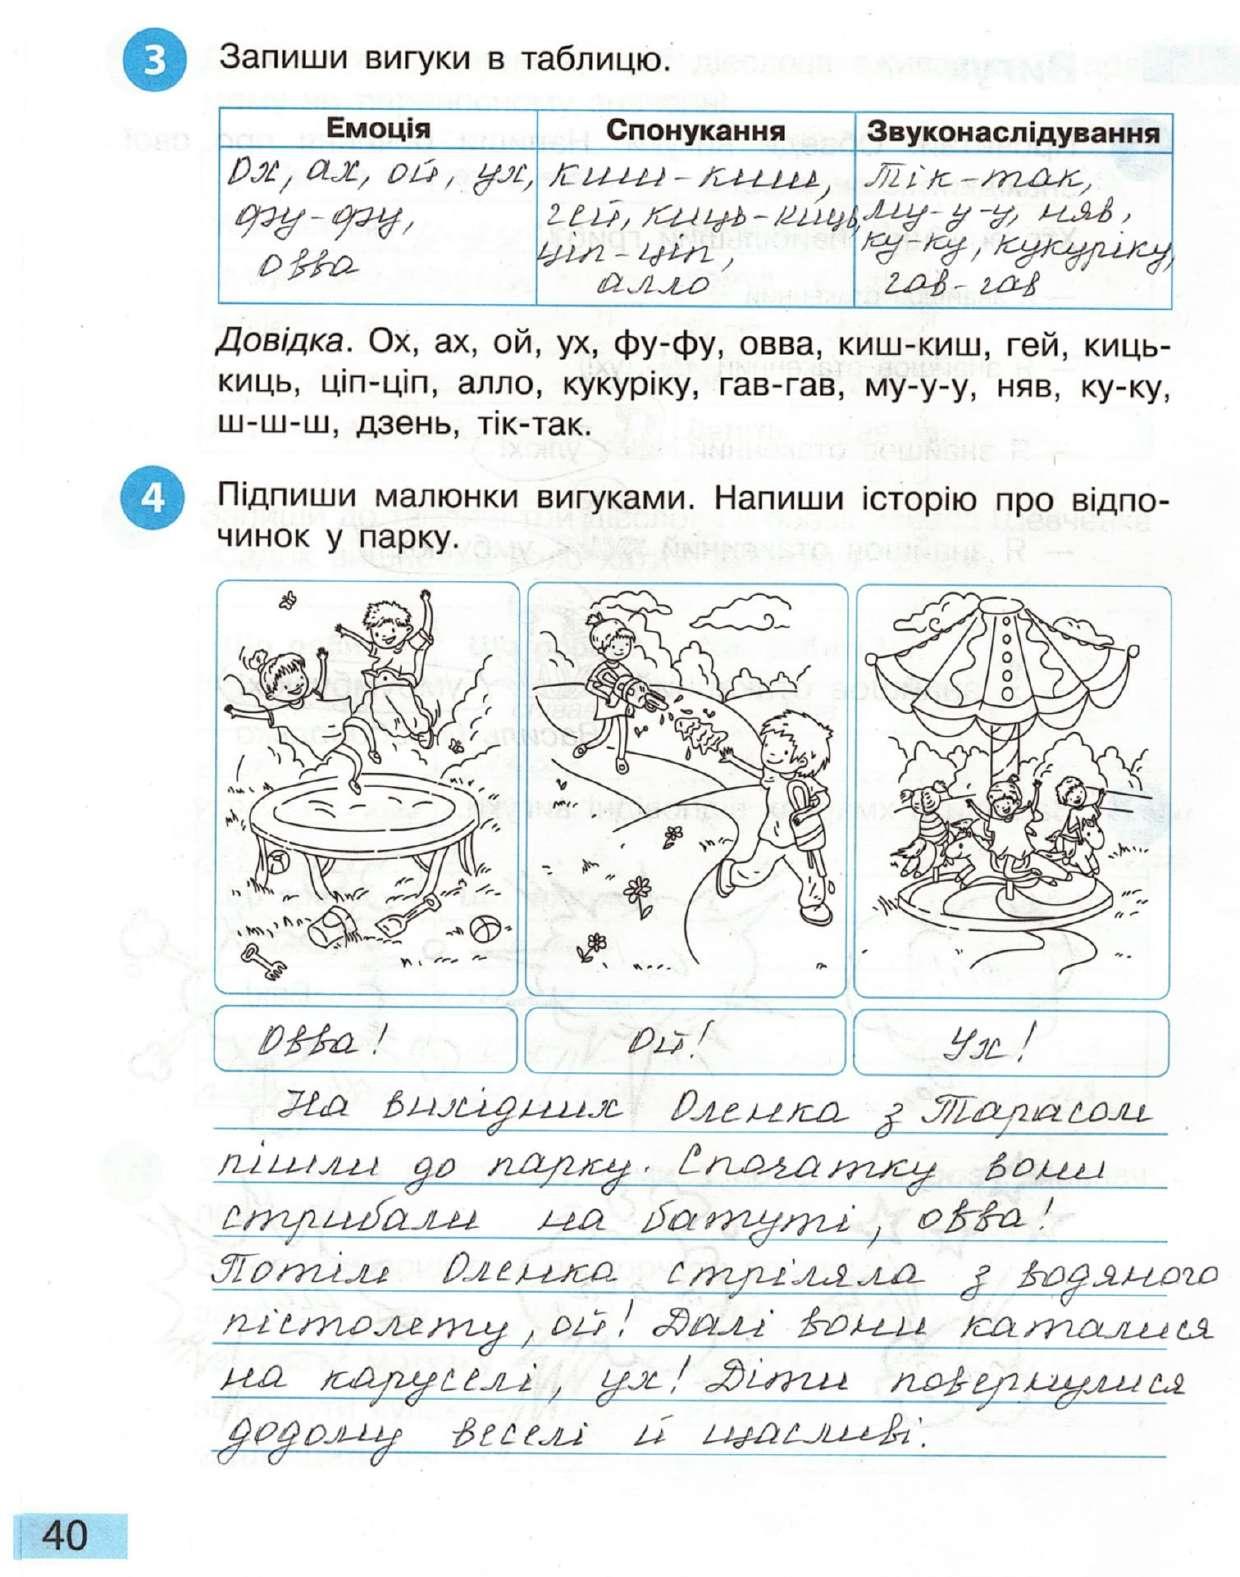 3 Запиши вигуки в таблицю.
Емоція Спонукання Звуконаслідування
Ох, ах, ой, ух, киш-киш, тік-так,
фу-фу, гей, киць-киць, му-у-у, няв,
овва ціп-ціп, ку-ку, кукуріку,
алло гав-гав
Довідка. Ох, ах, ой, ух, фу-фу, овва, киш-киш, гей, киць-
киць, ціп-ціп, алло, кукуріку, гав-гав, му-у-у, няв, ку-ку,
ш-ш-ш, дзень, тік-так.
4 Підпиши малюнки вигуками. Напиши історію про відпо-
чинок у парку.
Овва! Ой! Ух!
На вихідних Оленка з Тарасом
пішли до парку. Спочатку вони
стрибали на батуті, овва!
Потім Оленка стріляла з водяного
пістолету, ой! Далі вони каталися
на каруселі, ух! Діти повернулися
додому веселі й щасливі.
40